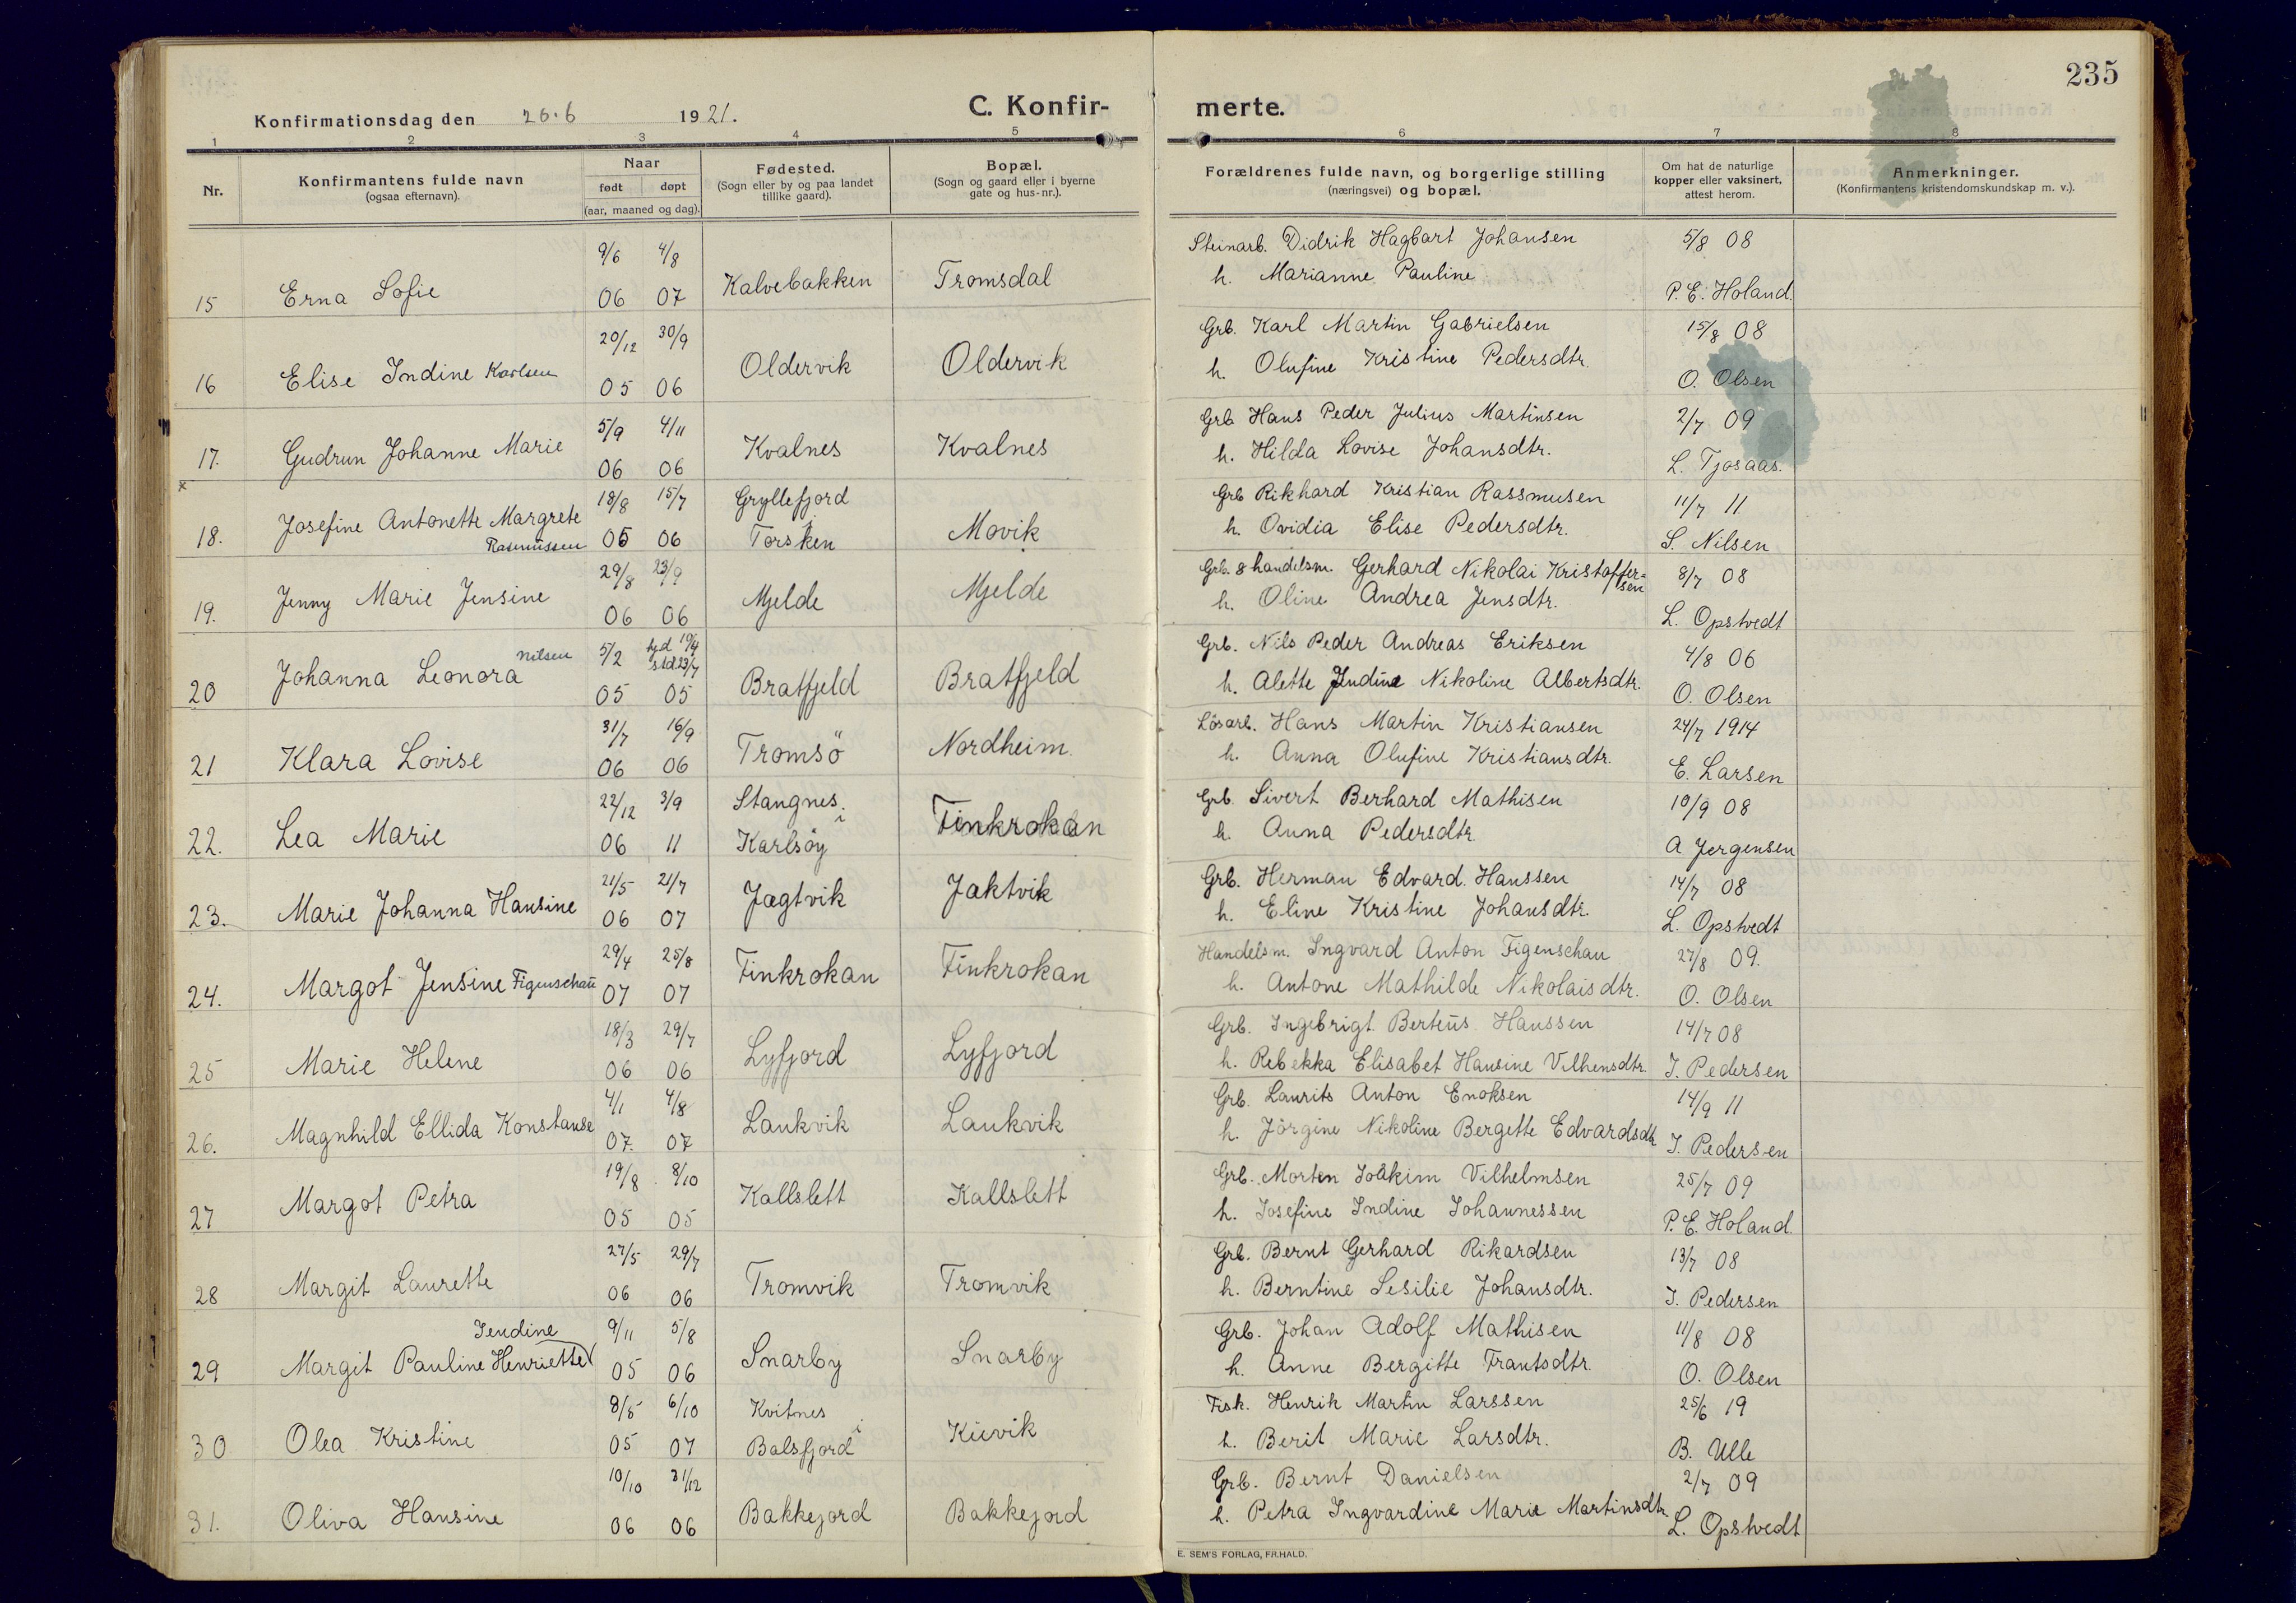 235
Konfirmationsdag den 26.6 1921.
C. Konfir-
merte.
1 2 3 4 5 6 7 8
Nr.
Konfirmantens fulde navn
(ogsaa efternavn).
Naar
født døpt
(aar, maaned og dag).
Fødested.
(Sogn eller by og paa landet
tillike gaard).
Bopæl.
(Sogn og gaard eller i byerne
gate og hus-nr.).
Forældrenes fulde navn, og borgerlige stilling
(næringsvei) og bopæl.
Om hat de naturlige
kopper eller vaksinert,
attest herom.
Anmerkninger.
(Konfirmantens kristendomskundskap m. v.).
9/6 4/8 Steinarb. Didrik Hagbart Johansen 5/8 08
15 Erna Sofie 06 07 Kalvebakken Tromsdal h. Marianne Pauline P. E. Holand.
20/12 30/9 Grb. Karl Martin Gabrielsen 15/8 08
16 Elise Indine Karlsen 05 06 Oldervik Oldervik h. Olufine Kristine Pedersdtr. O. Olsen
5/9 4/11 Grb Hans Peder Julius Martinsen 2/7 09
17. Gudrun Johanne Marie 06 06 Kvalnes Kvalnes h. Hilda Lovise Johansdtr. L. Tjosaas.
x 18/8 15/7 Gryllefjord Grb Rikhard Kristian Rassmusen 11/7 11
18. Josefine Antonette Margrete Rasmussen 05 06 Torsken Movik h. Ovidia Elise Pedersdtr. S. Nilsen
29/8 23/9 Grb. & handelsm. Gerhard Nikolai Kristoffer=sen 8/7 08
19. Jenny Marie Jensine 06 06 Mjelde Mjelde h. Oline Andrea Jensdtr. L. Opstvedt
Nilsen 5/2 hjd 19/4 std 23/7 Grb. Nils Peder Andreas Eriksen 4/8 06
20 Johanna Leonora 05 05 Bratfjeld Bratfjeld h. Alette Jndine Nikoline Albertsdtr. O. Olsen
31/7 16/9 Lösarb. Hans Martin Kristiansen 24/7 1914
21 Klara Lovise 06 06 Tromsö Nordheim. h. Anna Olufine Kristiansdtr. E. Larsen
22/12 3/9 Stangnes i Grb. Sivert Berhard Mathisen 10/9 08
22. Lea Marie 06 11 Karlsöy Finkrokan h. Anna Pedersdtr. A Jørgensen
21/5 21/7 Grb. Herman Edvard. Hanssen 14/7 08
23. Marie Johanna Hansine 06 07 Jægtvik Jaktvik h. Eline Kristine Johansdtr. L. Opstvedt
29/4 25/8 Handelsm. Ingvard Anton Figenschau 27/8 09.
24. Margot Jensine Figenschau 07 07 Finkrokan Finkrokan h. Antone Mathilde Nikolaisdtr. O. Olsen
18/3 29/7 Grb. Ingebrigt Berteus Hanssen 14/7 08
25 Marie Helene 06 06 Lyfjord Lyfjord h. Rebekka Elisabet Hansine Vilhemsdtr. J. Pedersen
4/1 4/8 Grb. Laurits Anton Enoksen 14/9 11
26. Magnhild Ellida Konstanse 07. 07 Laukvik Laukvik h. Jörgine Nikoline Bergette Edvardsdtr J. Pedersen
19/8 8/10 Grb. Morten Joakim Vilhelmsen 25/7 09
27 Margot Petra 05 05 Kallslett Kallslett h. Josefine Indine Johannessen P. E. Holand.
27/5 29/7 Grb. Bernt Gerhard Rikardsen 13/7 08
28 Margit Laurette 06 06 Tromvik Tromvik h. Berntine Sesilie Johansdtr. J. Pedersen
Jendine 9/11 5/8 Grb. Johan Adolf Mathisen 11/8 08
29 Margit Pauline Henriette 05 06 Snarby Snarby h. Anne Bergitte Frantsdtr. O. Olsen
8/5 6/10 Kvitnes i Fisk. Henrik Martin Larssen 25/6 19
30 Olea Kristine 05 07 Balsfjord Kuvik h. Berit Marie Larsdtr. B. Ulle
10/10 31/12 Grb. Bernt Danielsen 2/7 09
31. Oliva Hansine 06 06 Bakkejord Bakkejord h. Petra Ingvardine Marie Martinsdtr L. Opstvedt
E. SEM'S FORLAG, FR.HALD.